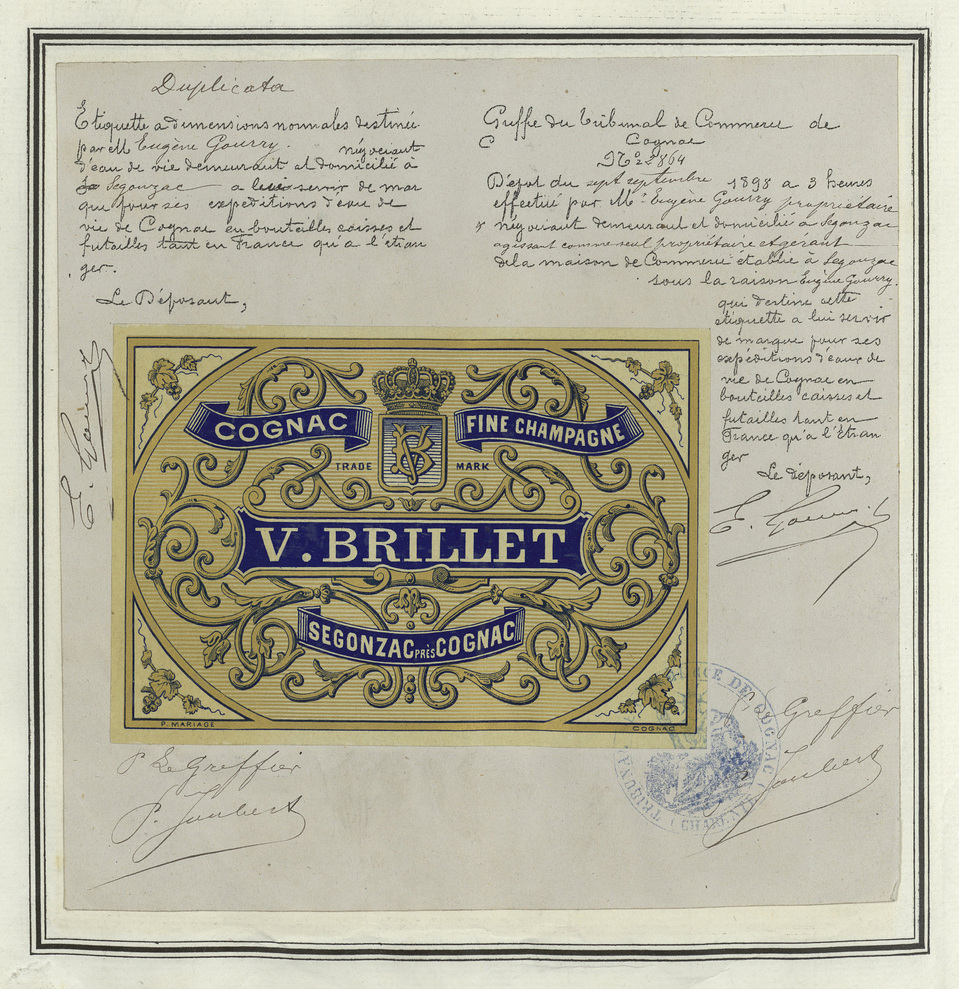 Duplicata
Etiquette a dimensions normales destinée
par M Eugène Gourry. négociant
d'eau de vie demeurant et domicilié à
Segonzac a lui servir de mar
que pour ses expeditions d'eau de
vie de Cognac en bouteilles caisses et
futailles tant en France qu'a l'étran
ger.
Le Déposant,
Greffe du Tribunal de Commerce de
C Cognac
N° 2864
Dépot du sept septembre 1898 a 3 heures
effectué par Mr Eugène Gourry propriétaire
négociant demeurant et domicilié à Segonzac
agissant comme seul propriétaire et gérant
de la maison de Commerce établie à Segonzac
sous la raison Eugène Gourry.
qui destine cette
étiquette a lui servir
de marque pour ses
expéditions d'eaux de
vie de Cognac en
bouteilles caisses et
futailles tant en
France qu'a l'étran
ger
Le déposant,
E. Gourry
E. Gourry
COGNAC
FINE CHAMPAGNE
VB
TRADE MARK
V. BRILLET
SEGONZAC PRÈS COGNAC
P. MARIAGE
COGNAC
P Le Greffier
P. Joubert
P Greffier
Joubert
TRIBUNAL DE COMMERCE DE COGNAC
(CHARENTE)